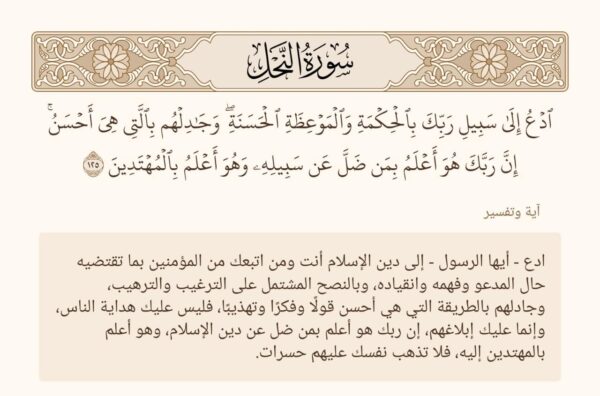 سُورَةُ النَّحْلِ
ٱدْعُ إِلَىٰ سَبِيلِ رَبِّكَ بِٱلْحِكْمَةِ وَٱلْمَوْعِظَةِ ٱلْحَسَنَةِۖ وَجَٰدِلْهُم بِٱلَّتِى هِىَ أَحْسَنُۚ
إِنَّ رَبَّكَ هُوَ أَعْلَمُ بِمَن ضَلَّ عَن سَبِيلِهِۦ وَهُوَ أَعْلَمُ بِٱلْمُهْتَدِينَ ١٢٥
آية وتفسير
ادع - أيها الرسول - إلى دين الإسلام أنت ومن اتبعك من المؤمنين بما تقتضيه
حال المدعو وفهمه وانقياده، وبالنصح المشتمل على الترغيب والترهيب،
وجادلهم بالطريقة التي هي أحسن قولًا وفكرًا وتهذيبًا، فليس عليك هداية الناس،
وإنما عليك إبلاغهم، إن ربك هو أعلم بمن ضل عن دين الإسلام، وهو أعلم
بالمهتدين إليه، فلا تذهب نفسك عليهم حسرات.